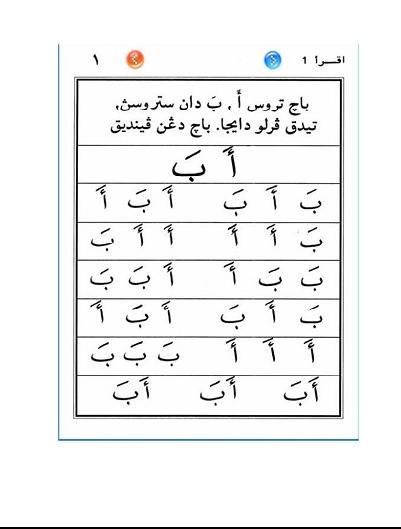 اقـرأ 1 ١
باچ تروس أَ , بَ دان ستروسڽ,
تيدق ڤرلو دايجا. باچ دڠن ڤينديق
أَ بَ
بَ أَ بَ أَ بَ أَ
بَ أَ أَ أَ أَ بَ
بَ بَ أَ أَ بَ بَ
بَ أَ بَ أَ بَ أَ
أَ أَ أَ بَ بَ بَ
أَبَ أَبَ أَبَ